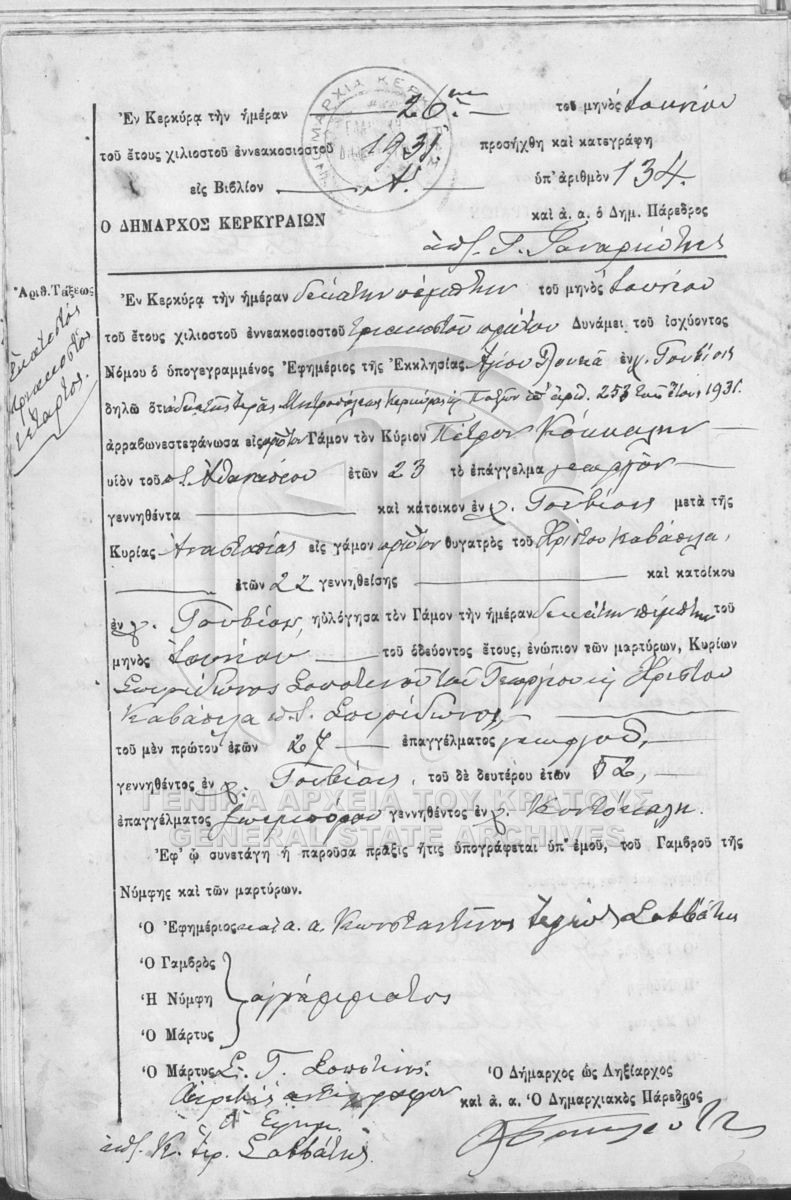 Ἐν Κερκύρᾳ τὴν ἡμέραν 26ην τοῦ μηνὸς Ἰουνίου
τοῦ ἔτους χιλιοστοῦ ἐννεακοσιοστοῦ 1931 προσήχθη καὶ κατεγράφη
εἰς Βιβλίον Α. ὑπ' ἀριθμὸν 134.
Ο ΔΗΜΑΡΧΟΣ ΚΕΡΚΥΡΑΙΩΝ καὶ ἀ. α. ὁ Δημ. Πάρεδρος
Ἀριθ. Τάξεως
Ἑκατοστὸς
τριακοστὸς
τέταρτος.
Ἐν Κερκύρᾳ τὴν ἡμέραν δεκάτην πέμπτην τοῦ μηνὸς Ἰουνίου
τοῦ ἔτους χιλιοστοῦ ἐννεακοσιοστοῦ τριακοστοῦ πρώτου Δυνάμει τοῦ ἰσχύοντος
Νόμου ὁ ὑπογεγραμμένος Ἐφημέριος τῆς Ἐκκλησίας Ἁγίου Λουκᾶ ἐν χ. Γουβίοις
δηλῶ ὅτι ἀδείᾳ τῆς Ἱερᾶς Μητροπόλεως Κερκύρας κ Παξῶν ὑπ' ἀριθ. 253 τοῦ ἔτους 1931.
ἀρραβωνεστεφάνωσα εἰς πρῶτον Γάμον τὸν Κύριον Πέτρον Κόκκαλην
υἱὸν τοῦ Ἀθανασίου ἐτῶν 23 τὸ ἐπάγγελμα γεωργὸν
γεννηθέντα καὶ κάτοικον ἐν χ. Γουβίοις μετὰ τῆς
Κυρίας Ἀναστασίας εἰς γάμον πρῶτον θυγατρὸς τοῦ Χρίστου Καβάσιλα,
ἐτῶν 22 γεννηθείσης καὶ κατοίκου
ἐν χ. Γουβίοις, ηὐλόγησα τὸν Γάμον τὴν ἡμέραν δεκάτην πέμπτην τοῦ
μηνὸς Ἰουνίου, τοῦ ὁδεύοντος ἔτους, ἐνώπιον τῶν μαρτύρων, Κυρίων
Σπυρίδωνος Σοποτινοῦ τοῦ Γεωργίου κ Χρίστου
Καβάσιλα Σπυρίδωνος,
τοῦ μὲν πρώτου ἐτῶν 27 ἐπαγγέλματος γεωργοῦ,
γεννηθέντος ἐν χ. Γουβίοις, τοῦ δὲ δευτέρου ἐτῶν 52,
ΓΕΝΙΚΑ ΑΡΧΕΙΑ ΤΟΥ ΚΡΑΤΟΥΣ
ἐπαγγέλματος ζωεμπόρου γεννηθέντος ἐν χ. Κοντόκαλη.
GENERAL STATE ARCHIVES
Ἐφ' ᾧ συνετάγη ἡ παροῦσα πρᾶξις ἥτις ὑπογράφεται ὑπ' ἐμοῦ, τοῦ Γαμβροῦ τῆς
Νύμφης καὶ τῶν μαρτύρων.
Ὁ Ἐφημέριος καὶ α. α. Κωνσταντῖνος Ἱερεὺς Σαββάτης
Ὁ Γαμβρὸς
Ἡ Νύμφη ἀγράμματος
Ὁ Μάρτυς
Ὁ Μάρτυς Σ. Γ. Σοποτινός. Ὁ Δήμαρχος ὡς Ληξίαρχος
Ἀκριβὲς ἀντίγραφον καὶ ἀ. α. Ὁ Δημαρχιακὸς Πάρεδρος
Ὁ Ἐφημ.
Κ. Ἱερ. Σαββάτης.